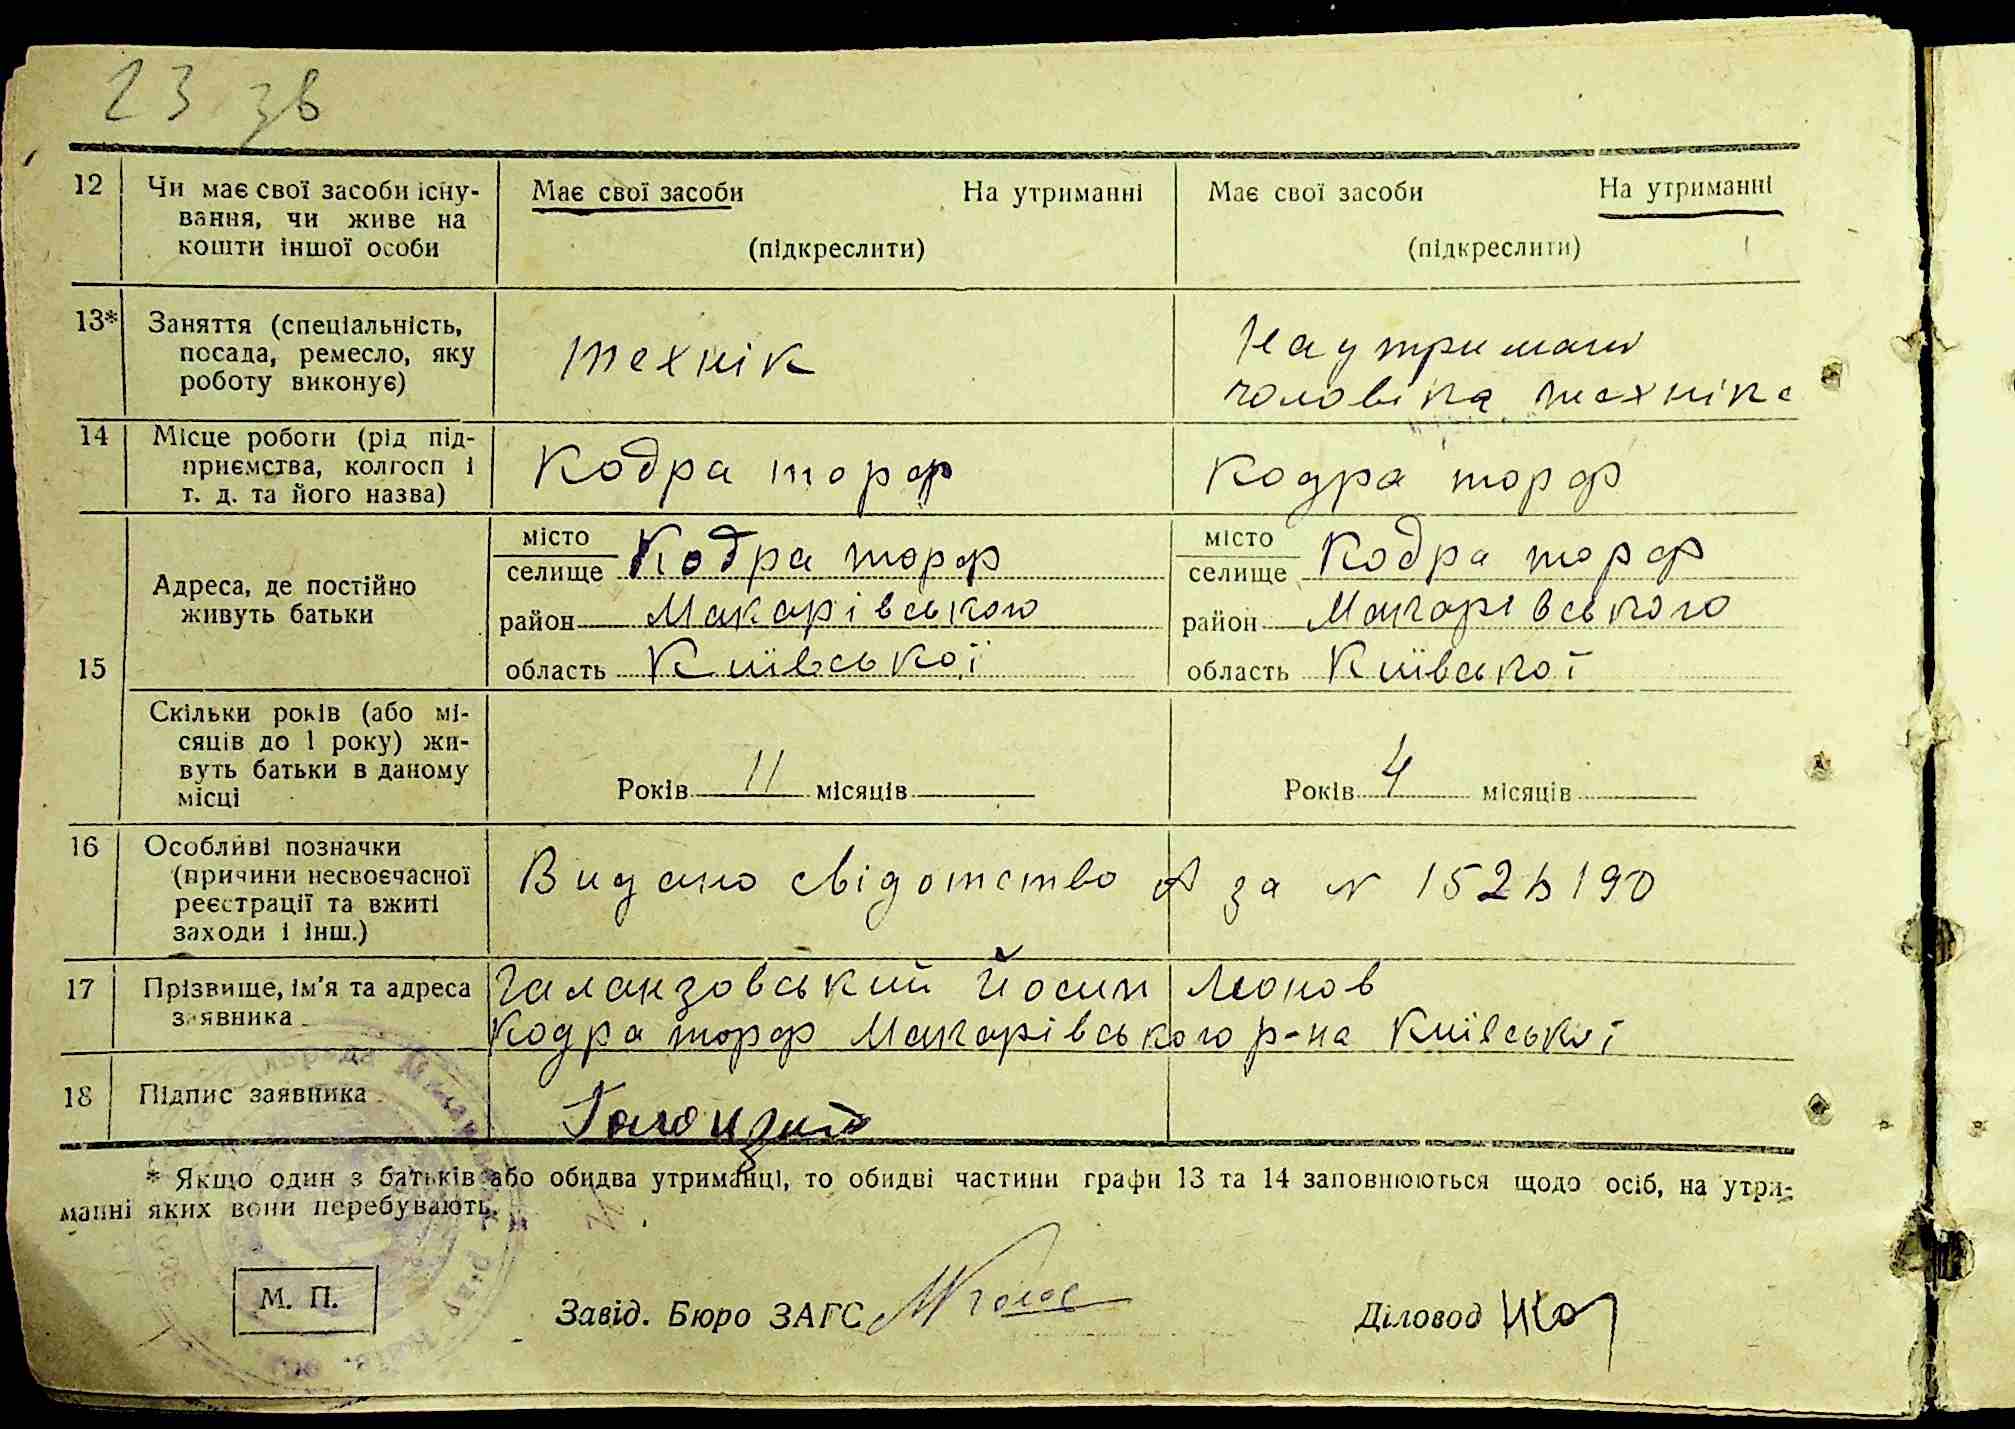 23 зв
12 Чи має свої засоби існу- Має свої засоби На утриманні Має свої засоби На утриманні
вання, чи живе на
кошти іншої особи (підкреслити) (підкреслити)
13* Заняття (спеціальність, технік На утримані
посада, ремесло, яку
роботу виконує) чоловіка техніка
14 Місце роботи (рід під-
приємства, колгосп і Кодра торф Кодра торф
т. д. та його назва)
місто Кодра торф місто Кодра торф
селище селище
15 Адреса, де постійно
живуть батьки район Макарівського район Макарівського
область Київської область Київської
Скільки років (або мі-
сяців до 1 року) жи-
вуть батьки в даному
місці Років 11 місяців Років 4 місяців
16 Особливі позначки
(причини несвоєчасної Видано свідотство за N 152190
реєстрації та вжиті
заходи і інш.)
17 Прізвище, ім'я та адреса Галанзовський Йосип Леонов
заявника Кодра торф Макарівського р-на Київської
18 Підпис заявника
* Якщо один з батьків або обидва утриманці, то обидві частини графи 13 та 14 заповнюються щодо осіб, на утри-
манні яких вони перебувають.
М. П. Завід. Бюро ЗАГС Діловод